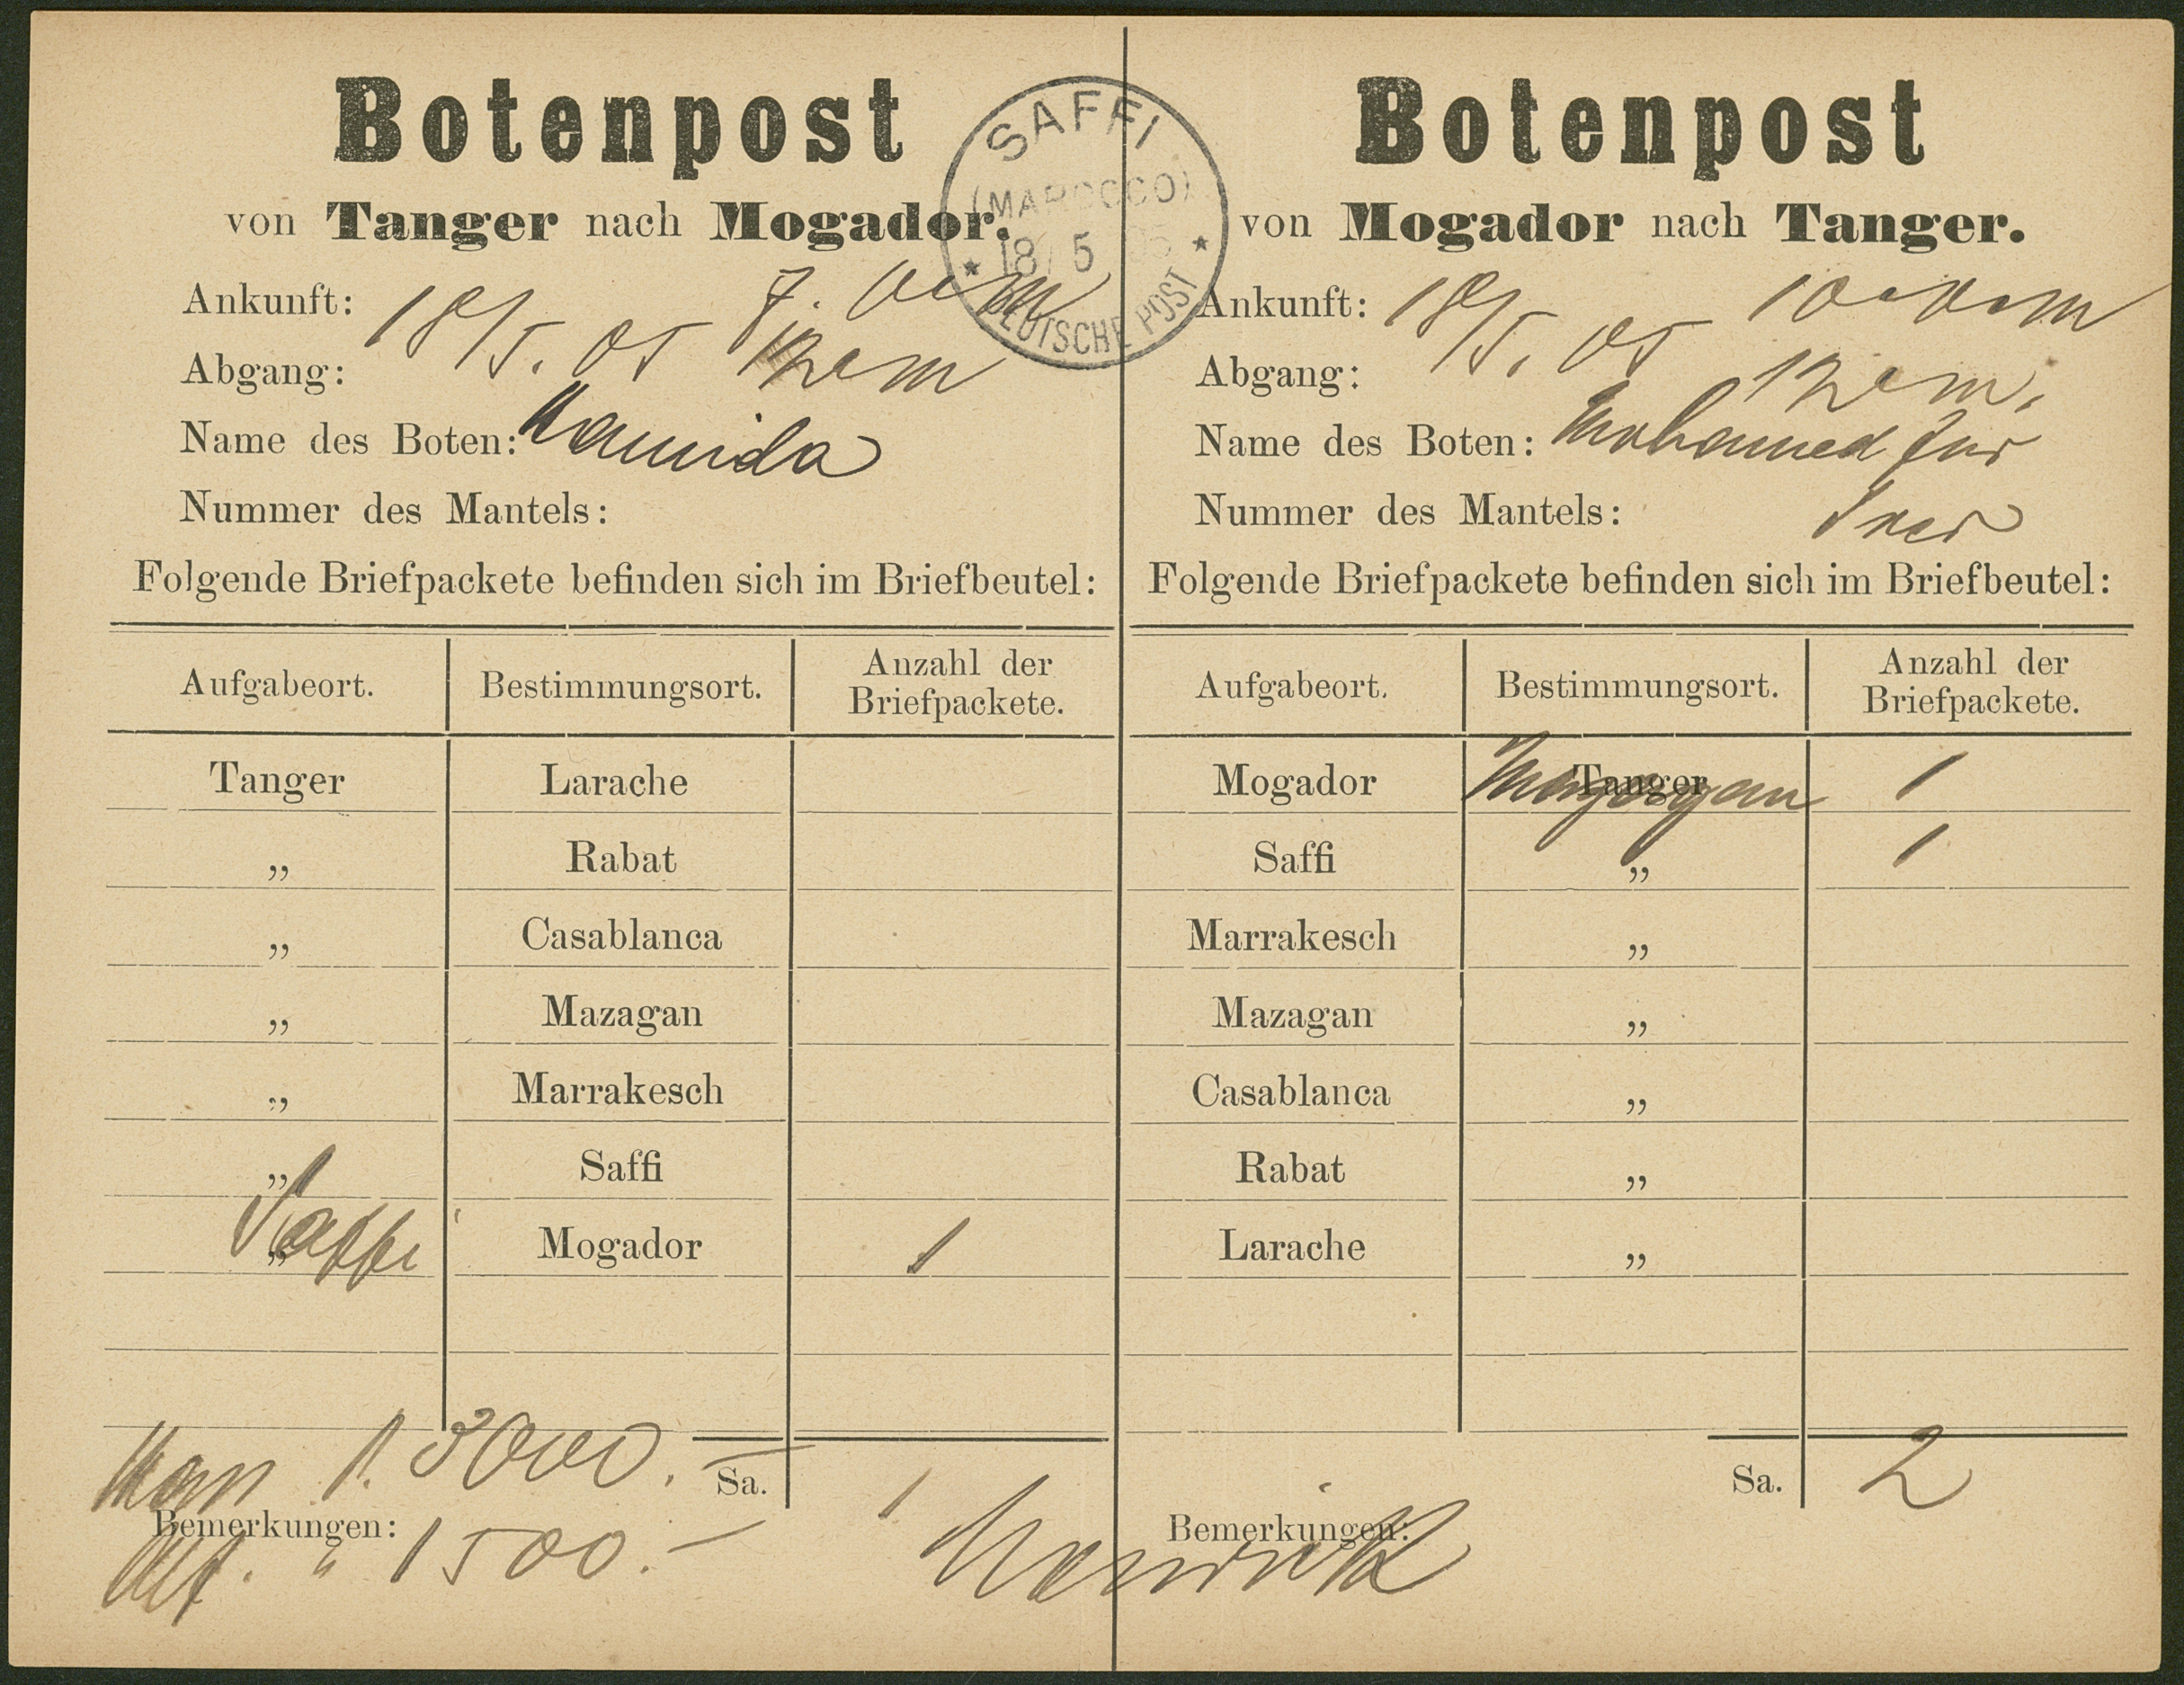 Botenpost
von Tanger nach Mogador.
Ankunft: 18/5. 05 7. vm
Abgang: 12 vm
Name des Boten: Hamida
Nummer des Mantels:
Folgende Briefpackete befinden sich im Briefbeutel:
Aufgabeort. Bestimmungsort. Anzahl der Briefpackete.
Tanger Larache
„ Rabat
„ Casablanca
„ Mazagan
„ Marrakesch
„ Saffi
Saffi Mogador 1
Sa. 1
3000.—
Bemerkungen:
" 1500.—
SAFFI
(MAROCCO)
18/5 05
* DEUTSCHE POST *
Botenpost
von Mogador nach Tanger.
Ankunft: 18/5. 05 10 vm
Abgang: 12 vm.
Name des Boten: Mohamed
Nummer des Mantels:
Folgende Briefpackete befinden sich im Briefbeutel:
Aufgabeort. Bestimmungsort. Anzahl der Briefpackete.
Mogador Tanger Mazagan 1
Saffi „ 1
Marrakesch „
Mazagan „
Casablanca „
Rabat „
Larache „
Sa. 2
Bemerkungen: